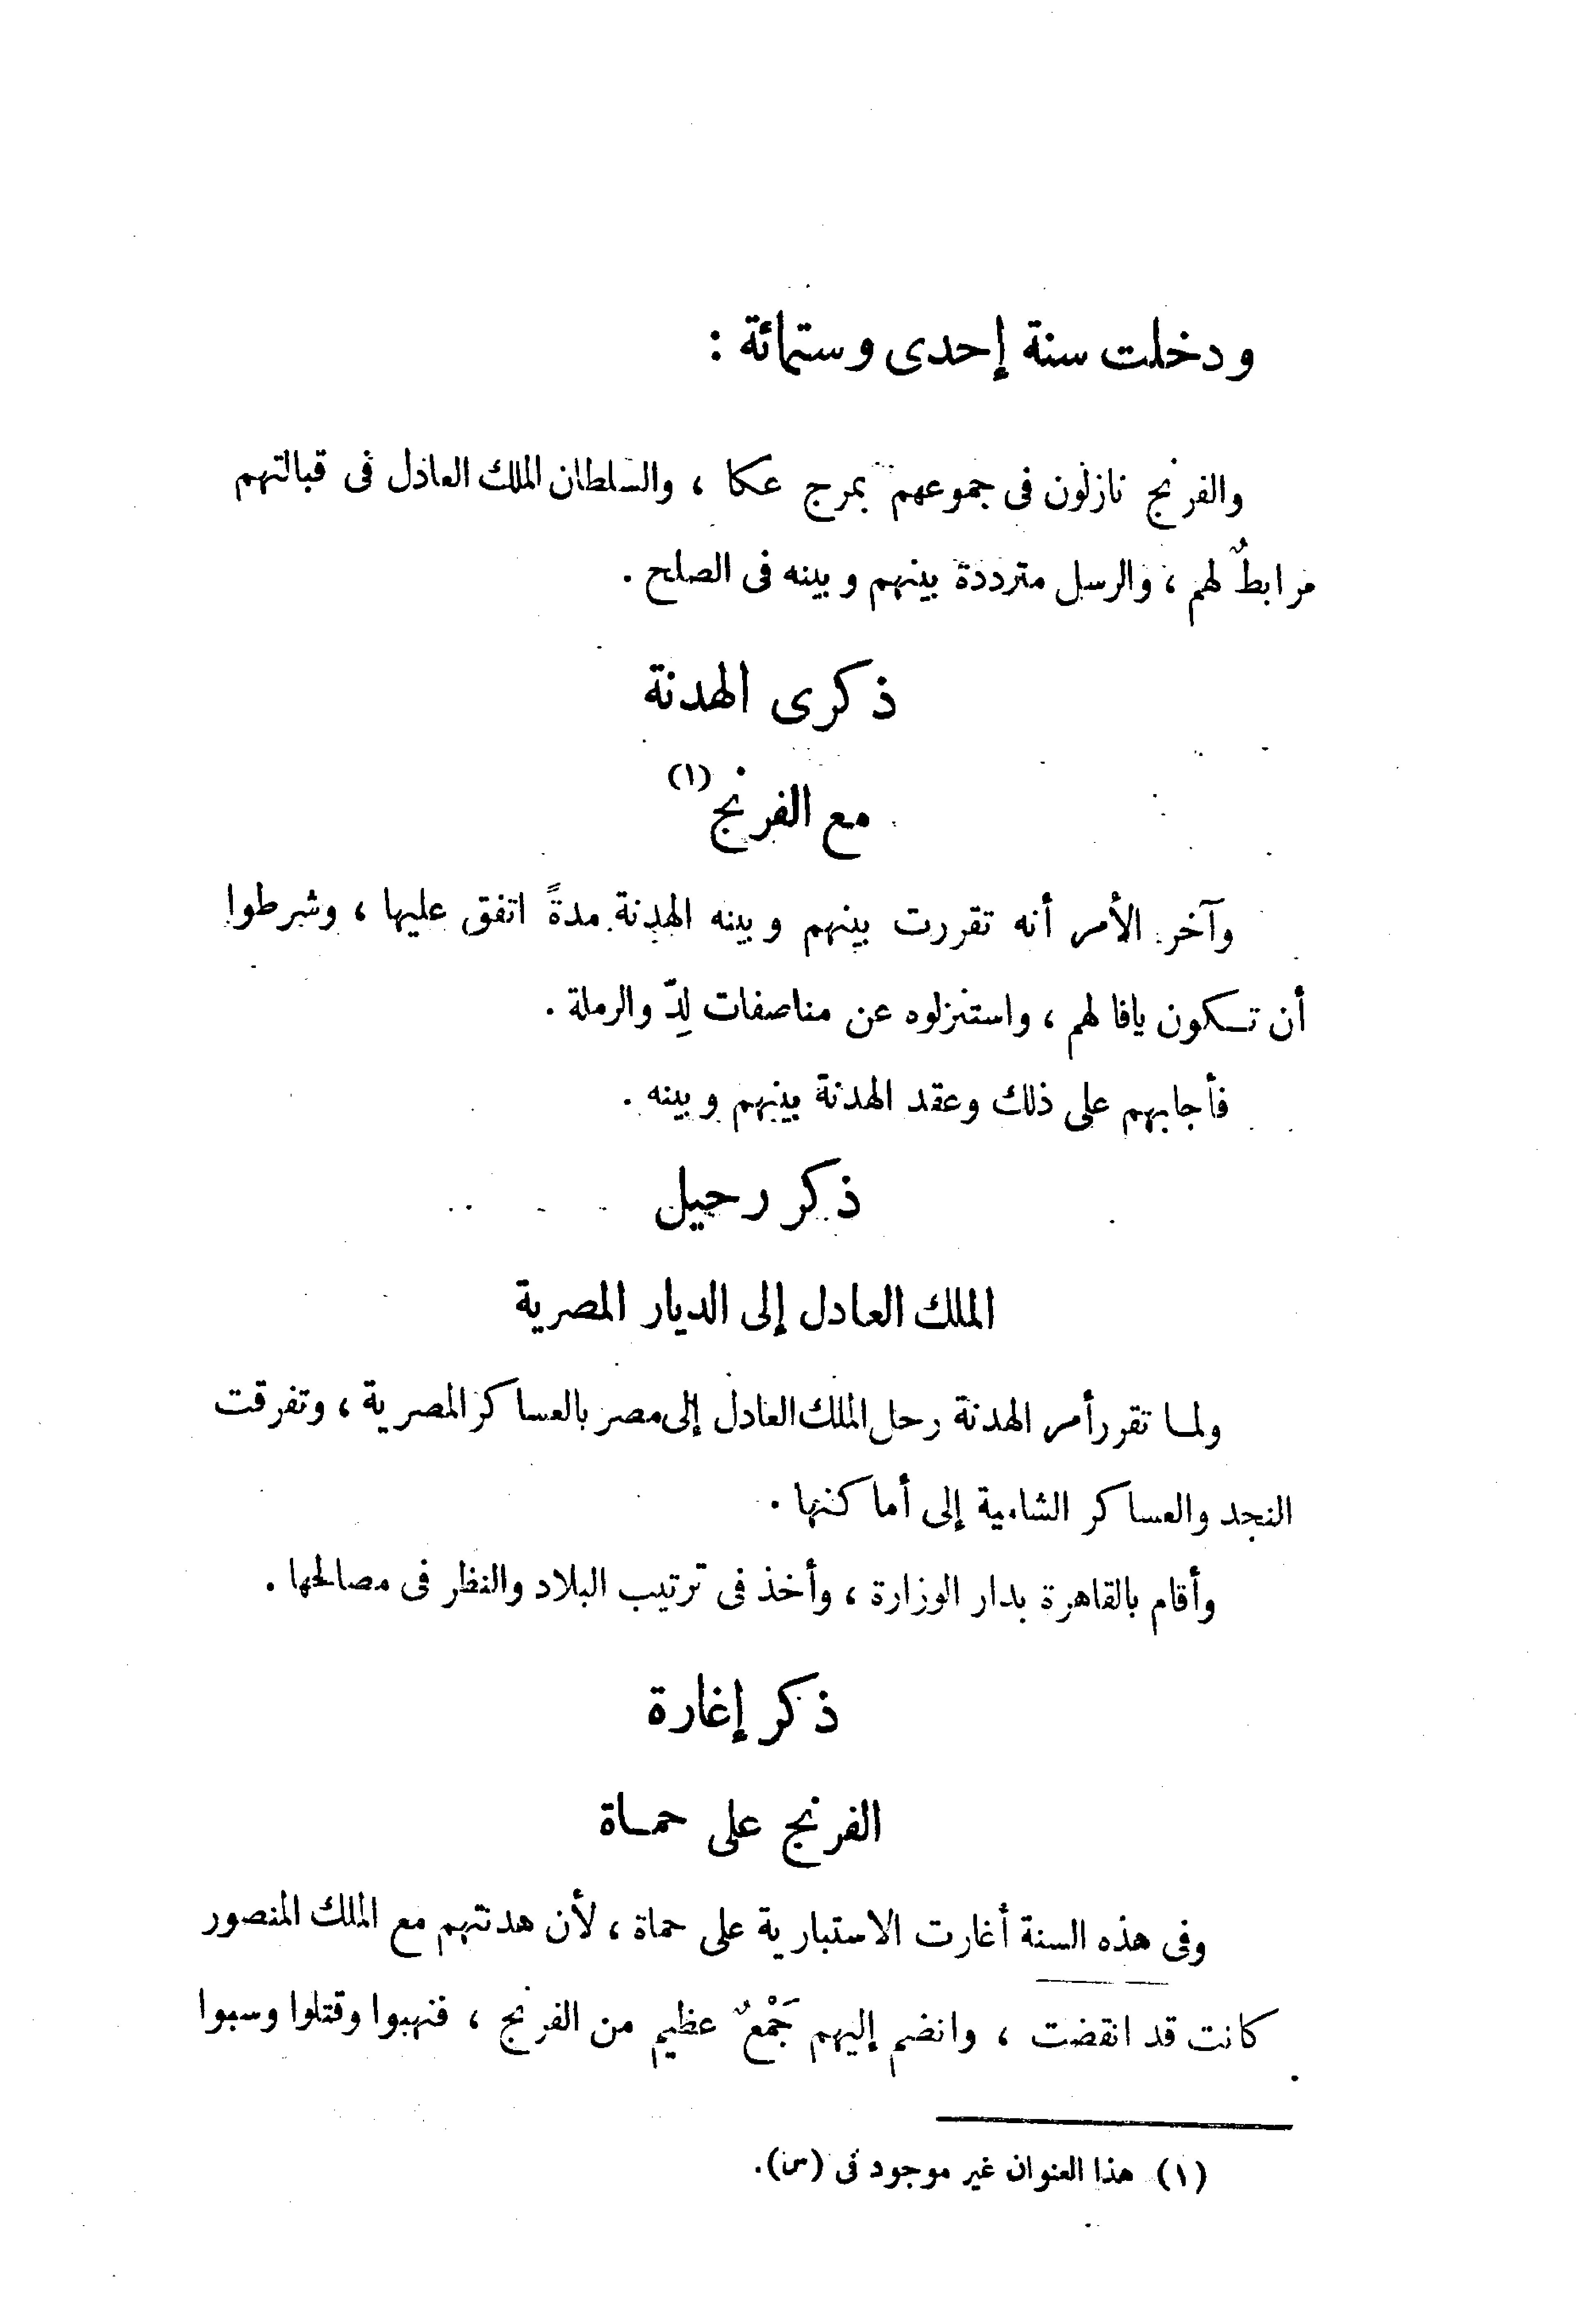 ودخلت سنة إحدى وستمائة :
والفرنج نازلون فى جموعهم بمرج عكا ، والسلطان الملك العادل فى قبالتهم
مرابطٌ لهم ، والرسل مترددة بينهم وبينه فى الصلح .
ذكرى الهدنة
مع الفرنج (١)
وآخر الأمر أنه تقررت بينهم وبينه الهدنة مدةً اتفق عليها ، وشرطوا
أن تكون يافا لهم ، واستنزلوه عن مناصفات لِدّ والرملة .
فأجابهم على ذلك وعقد الهدنة بينهم وبينه .
ذكر رحيل
الملك العادل إلى الديار المصرية
ولما تقرر أمر الهدنة رحل الملك العادل إلى مصر بالعساكر المصرية ، وتفرقت
النجد والعساكر الشامية إلى أماكنها .
وأقام بالقاهرة بدار الوزارة ، وأخذ فى ترتيب البلاد والنظر فى مصالحها .
ذكر إغارة
الفرنج على حماة
وفى هذه السنة أغارت الاستبارية على حماة ، لأن هدنتهم مع الملك المنصور
كانت قد انقضت ، وانضم إليهم جَمْعٌ عظيم من الفرنج ، فنهبوا وقتلوا وسبوا
(١) هذا العنوان غير موجود فى (س).